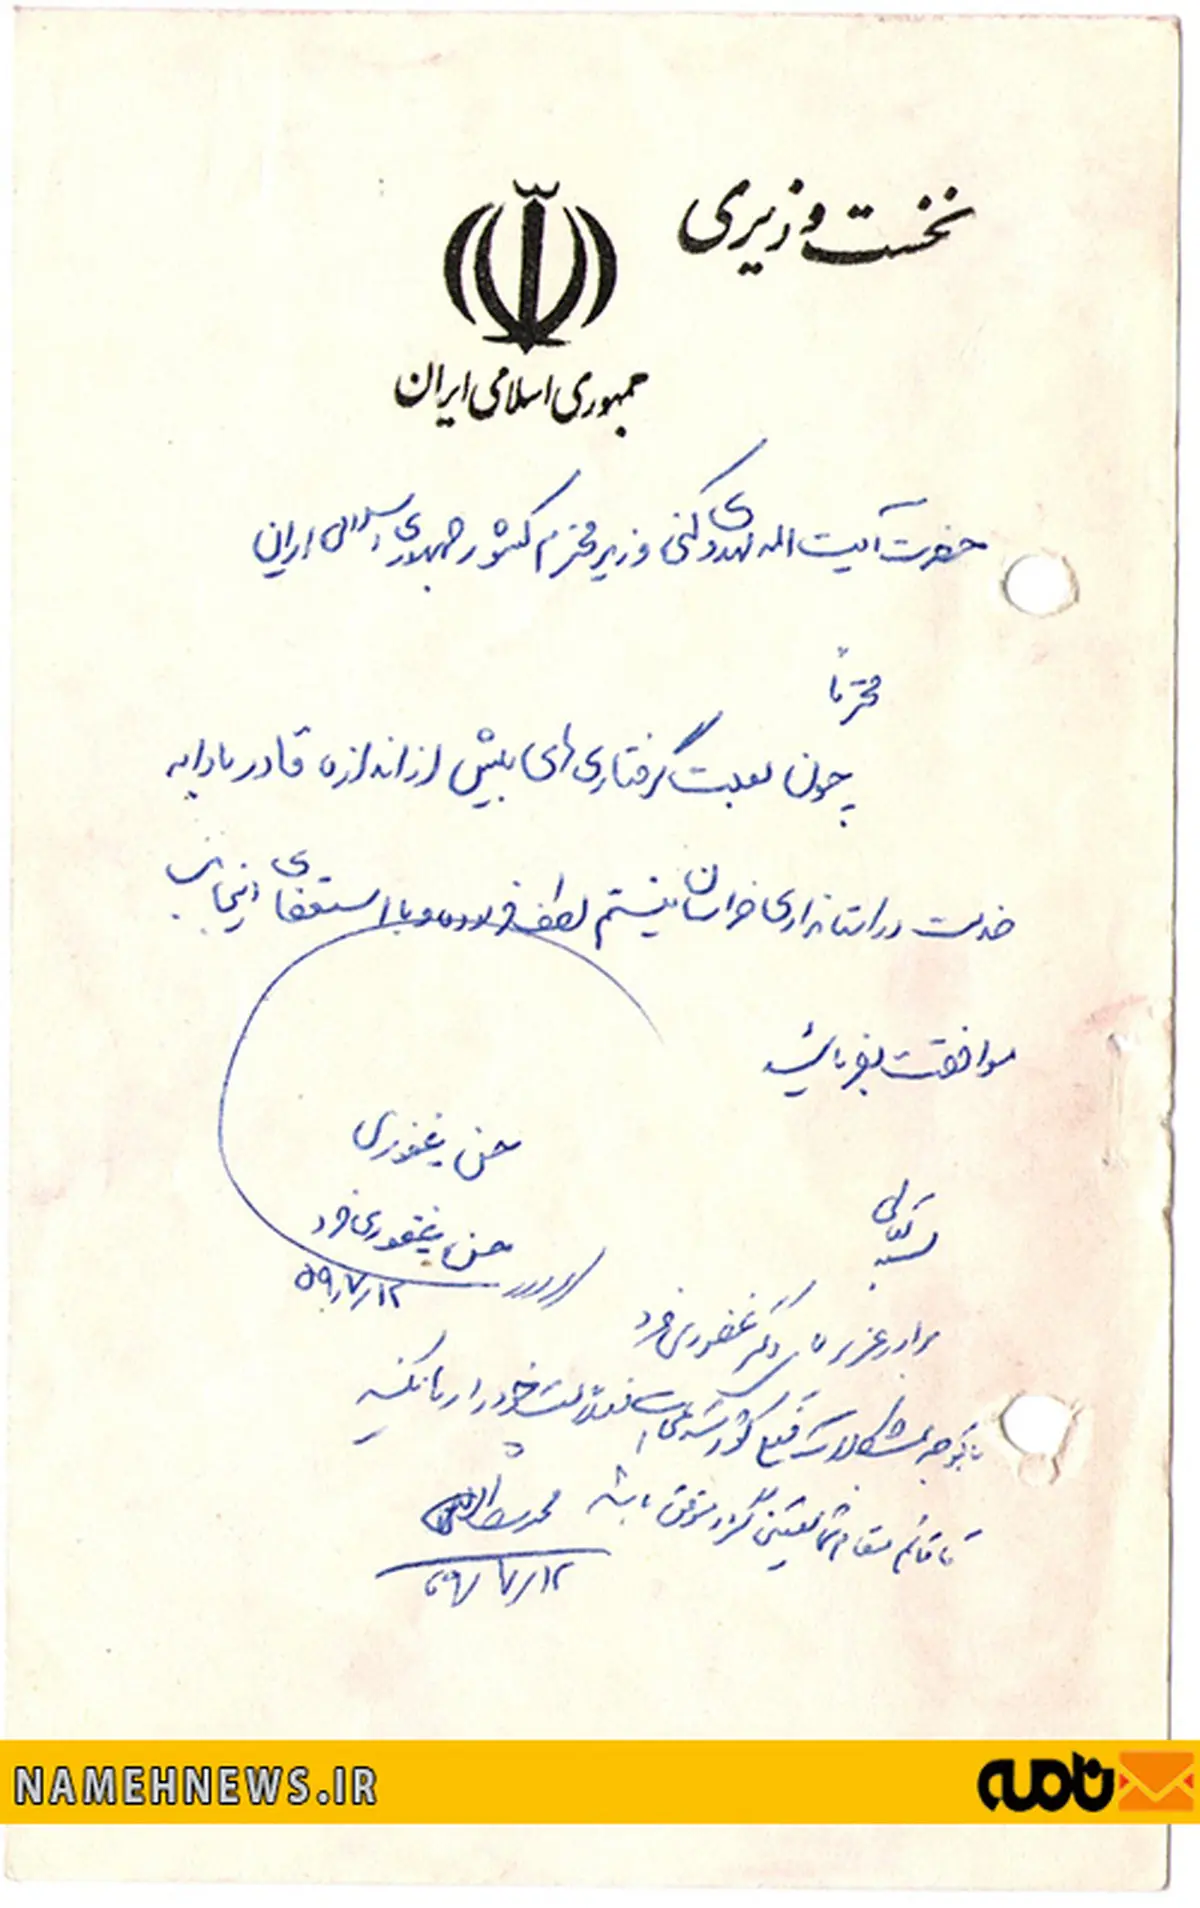 نخست وزیری
جمهوری اسلامی ایران
حضرت آیت اله مهدوی کنی وزیر محترم کشور جمهوری اسلامی ایران
محترماً
چون بعلت گرفتاری های بیش از اندازه قادر بادامه
خدمت در استانداری خراسان نیستم لطف فرموده و با استعفای اینجانب
موافقت بفرمائید
حسن غفوری
حسن غفوری فرد
۵۹/۷/۱۲
بسمه تعالی
برادر عزیز آقای دکتر غفوری فرد
با توجه بمشکلات فعلی کشور خود را
تا قائم مقام شما تعیین گردد موفق باشید
۵۹/۷/۱۲
NAMEHNEWS.IR
نامه